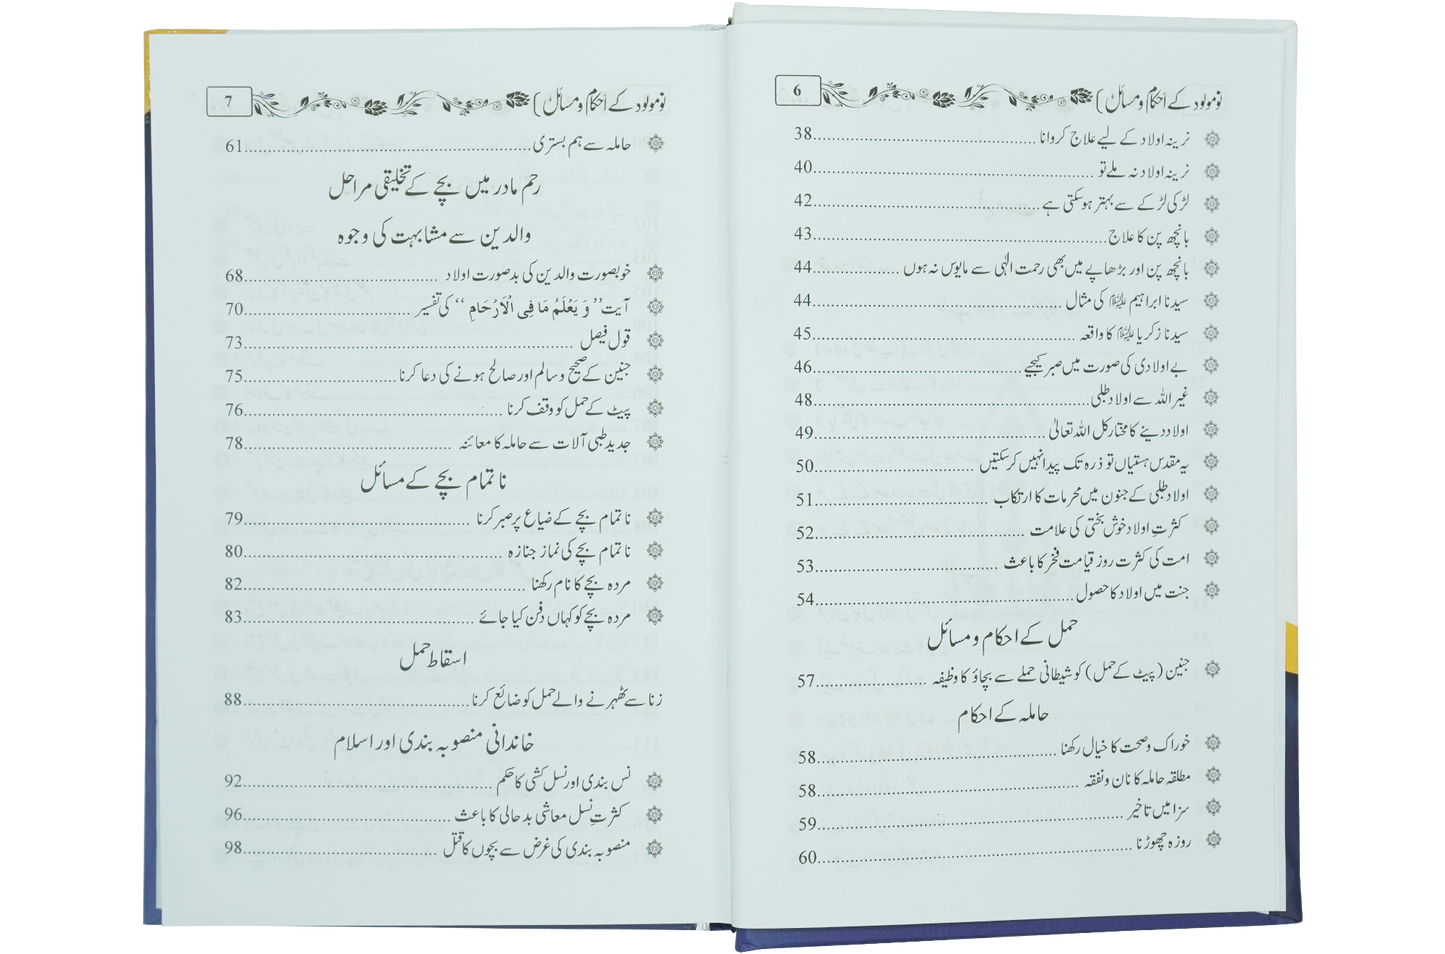 6 نومولود کے احکام و مسائل
نرینہ اولاد کے لیے علاج کروانا 38
نرینہ اولاد نہ ملے تو 40
لڑکی لڑکے سے بہتر ہوسکتی ہے 42
بانجھ پن کا علاج 43
بانجھ پن اور بڑھاپے میں بھی رحمت الٰہی سے مایوس نہ ہوں 44
سیدنا ابراہیم علیہ السلام کی مثال 44
سیدنا زکریا علیہ السلام کا واقعہ 45
بے اولادی کی صورت میں صبر کیجیے 46
غیر اللہ سے اولاد طلبی 48
اولاد دینے کا مختار کل اللہ تعالیٰ 49
یہ مقدس ہستیاں تو ذرہ تک پیدا نہیں کرسکتیں 50
اولاد طلبی کے جنون میں محرمات کا ارتکاب 51
کثرتِ اولاد خوش بختی کی علامت 52
امت کی کثرت روز قیامت فخر کا باعث 53
جنت میں اولاد کا حصول 54
حمل کے احکام و مسائل
جنین (پیٹ کے حمل) کو شیطانی حملے سے بچاؤ کا وظیفہ 57
حاملہ کے احکام
خوراک وصحت کا خیال رکھنا 58
مطلقہ حاملہ کا نان و نفقہ 58
سزا میں تاخیر 59
روزہ چھوڑنا 60
7 نومولود کے احکام و مسائل
حاملہ سے ہم بستری 61
رحم مادر میں بچے کے تخلیقی مراحل
والدین سے مشابہت کی وجوہ
خوبصورت والدین کی بدصورت اولاد 68
آیت ’’وَ یَعْلَمُ مَا فِی الْاَرْحَامِ‘‘ کی تفسیر 70
قول فیصل 73
جنین کے صحیح وسالم اور صالح ہونے کی دعا کرنا 75
پیٹ کے حمل کو وقف کرنا 76
جدید طبی آلات سے حاملہ کا معائنہ 78
نا تمام بچے کے مسائل
نا تمام بچے کے ضیاع پر صبر کرنا 79
نا تمام بچے کی نماز جنازہ 80
مردہ بچے کا نام رکھنا 82
مردہ بچے کو کہاں دفن کیا جائے 83
اسقاط حمل
زنا سے ٹھہرنے والے حمل کو ضائع کرنا 88
خاندانی منصوبہ بندی اور اسلام
نس بندی اور نسل کشی کا حکم 92
کثرتِ نسل معاشی بدحالی کا باعث 96
منصوبہ بندی کی غرض سے بچوں کا قتل 98